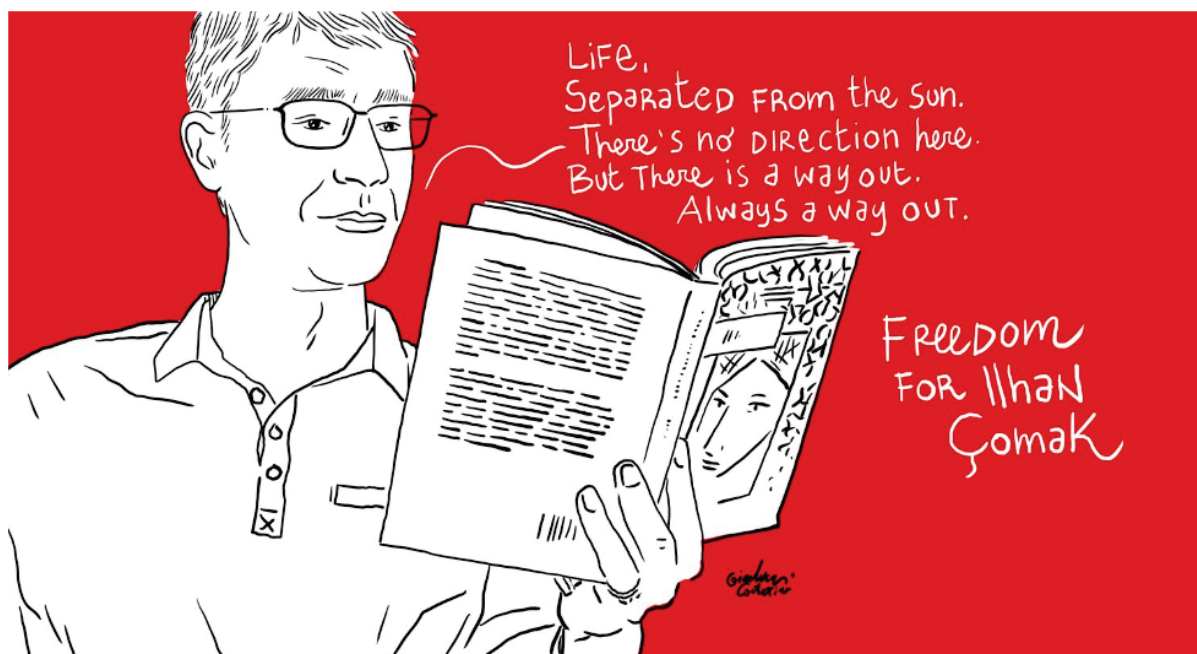 Life,
Separated from the sun.
There's no direction here.
But There is a way out.
Always a way out.
Freedom
for Ilhan
Çomak